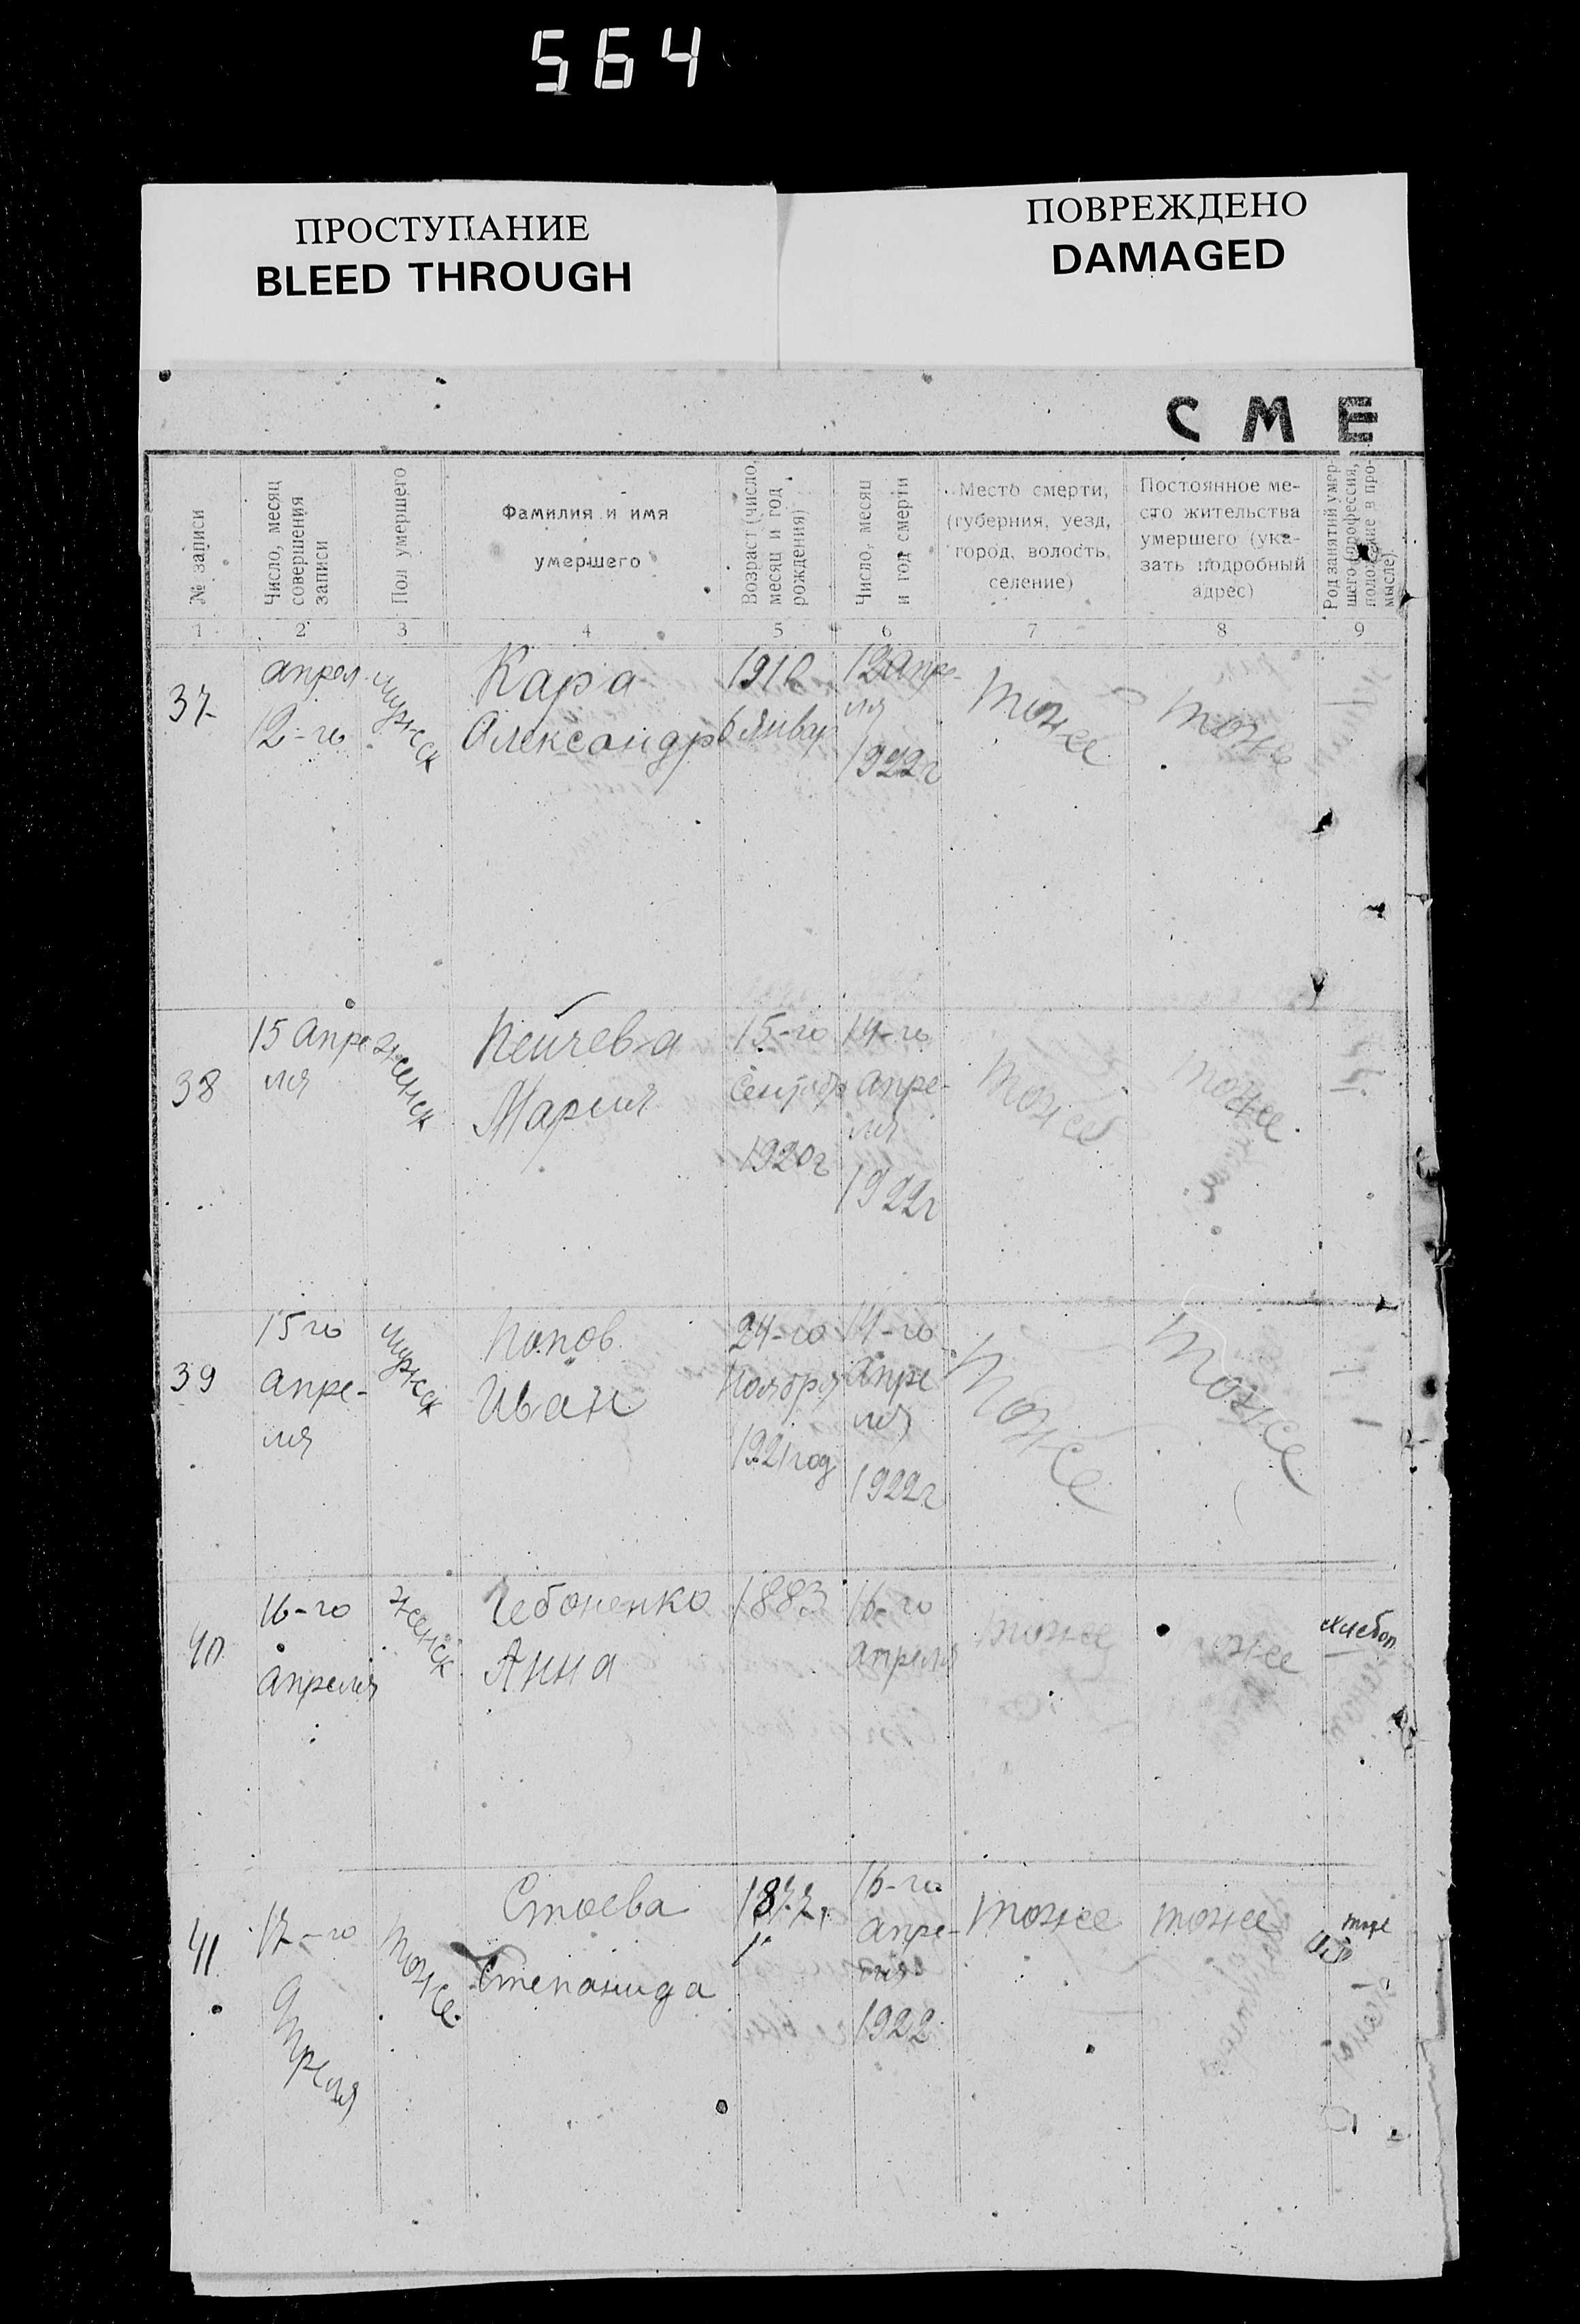 564
ПРОСТУПАНИЕ
BLEED THROUGH
ПОВРЕЖДЕНО
DAMAGED
СМЕ
№ записи
Число, месяц
совершения
записи
Пол умершего
Фамилия и имя
умершего
Возраст (число,
месяц и год
рождения)
Число, месяц
и год смерти
Место смерти,
(губерния, уезд,
город, волость,
селение)
Постоянное ме-
сто жительства
умершего (ука-
зать подробный
адрес)
Род занятий умер-
шего (профессия,
положение в про-
мысле).
1 2 3 4 5 6 7 8 9
37
апрел
12-го
мужск
Кара
Александр
1910
6 январ
12 апре-
ля
1922г
тоже
тоже
38
15 апре
ля
женск
Пейчева
Мария
15-го
Сентябр
1920г
14-го
апре-
ля
1922г
тоже
тоже
39
15 го
апре-
ля
мужск
Попов
Иван
24-го
Ноября
1921 год
14-го
апре
ля
1922г
тоже
тоже
40
16-го
апреля
женск
Чебоненко
Анна
1883
16-го
апреля
тоже
тоже
хлебоп
41
17-го
апреля
тоже
Стоева
Степанида
1877
16-го
апре-
ля
1922
тоже
тоже
тоже